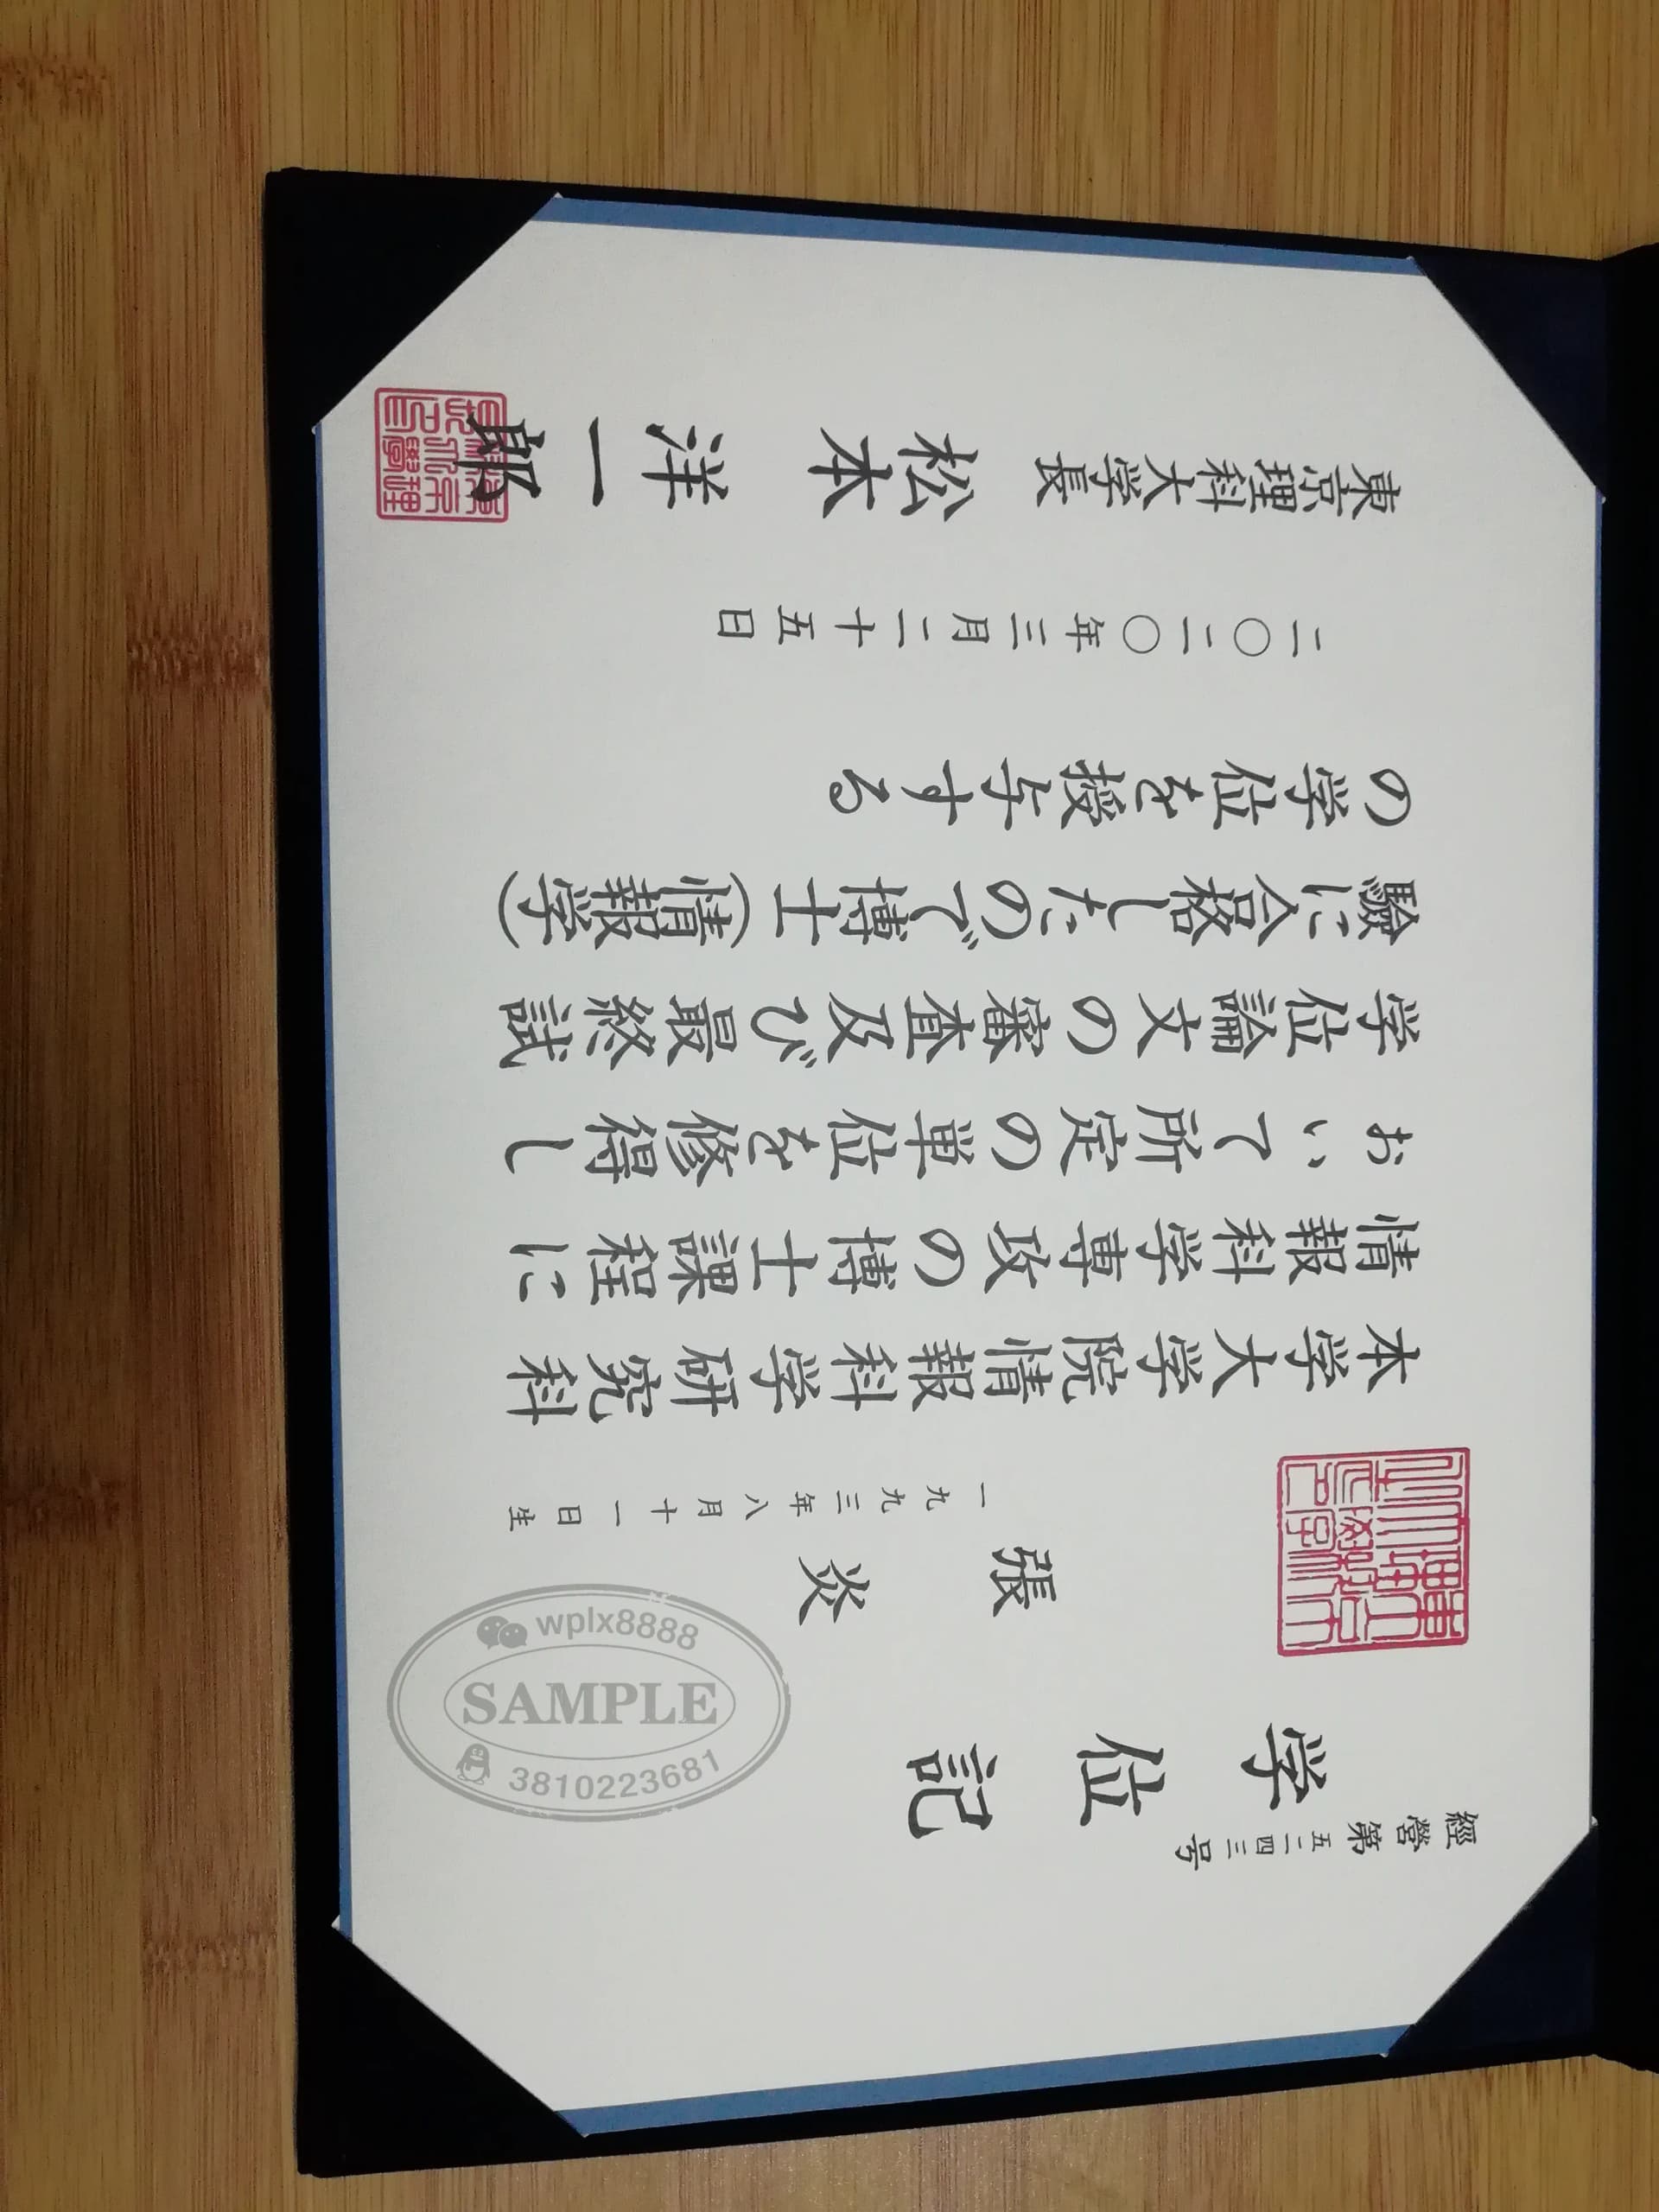 經營第五二四三号
学位記
張 炎
一九九三年八月十一日生
本学大学院情報科学研究科
情報科学専攻の博士課程に
おいて所定の単位を修得し
学位論文の審査及び最終試
驗に合格したので博士(情報学)
の学位を授与する
二〇二〇年三月二十五日
東京理科大学長 松本 洋一郎
wplx8888
SAMPLE
3810223681